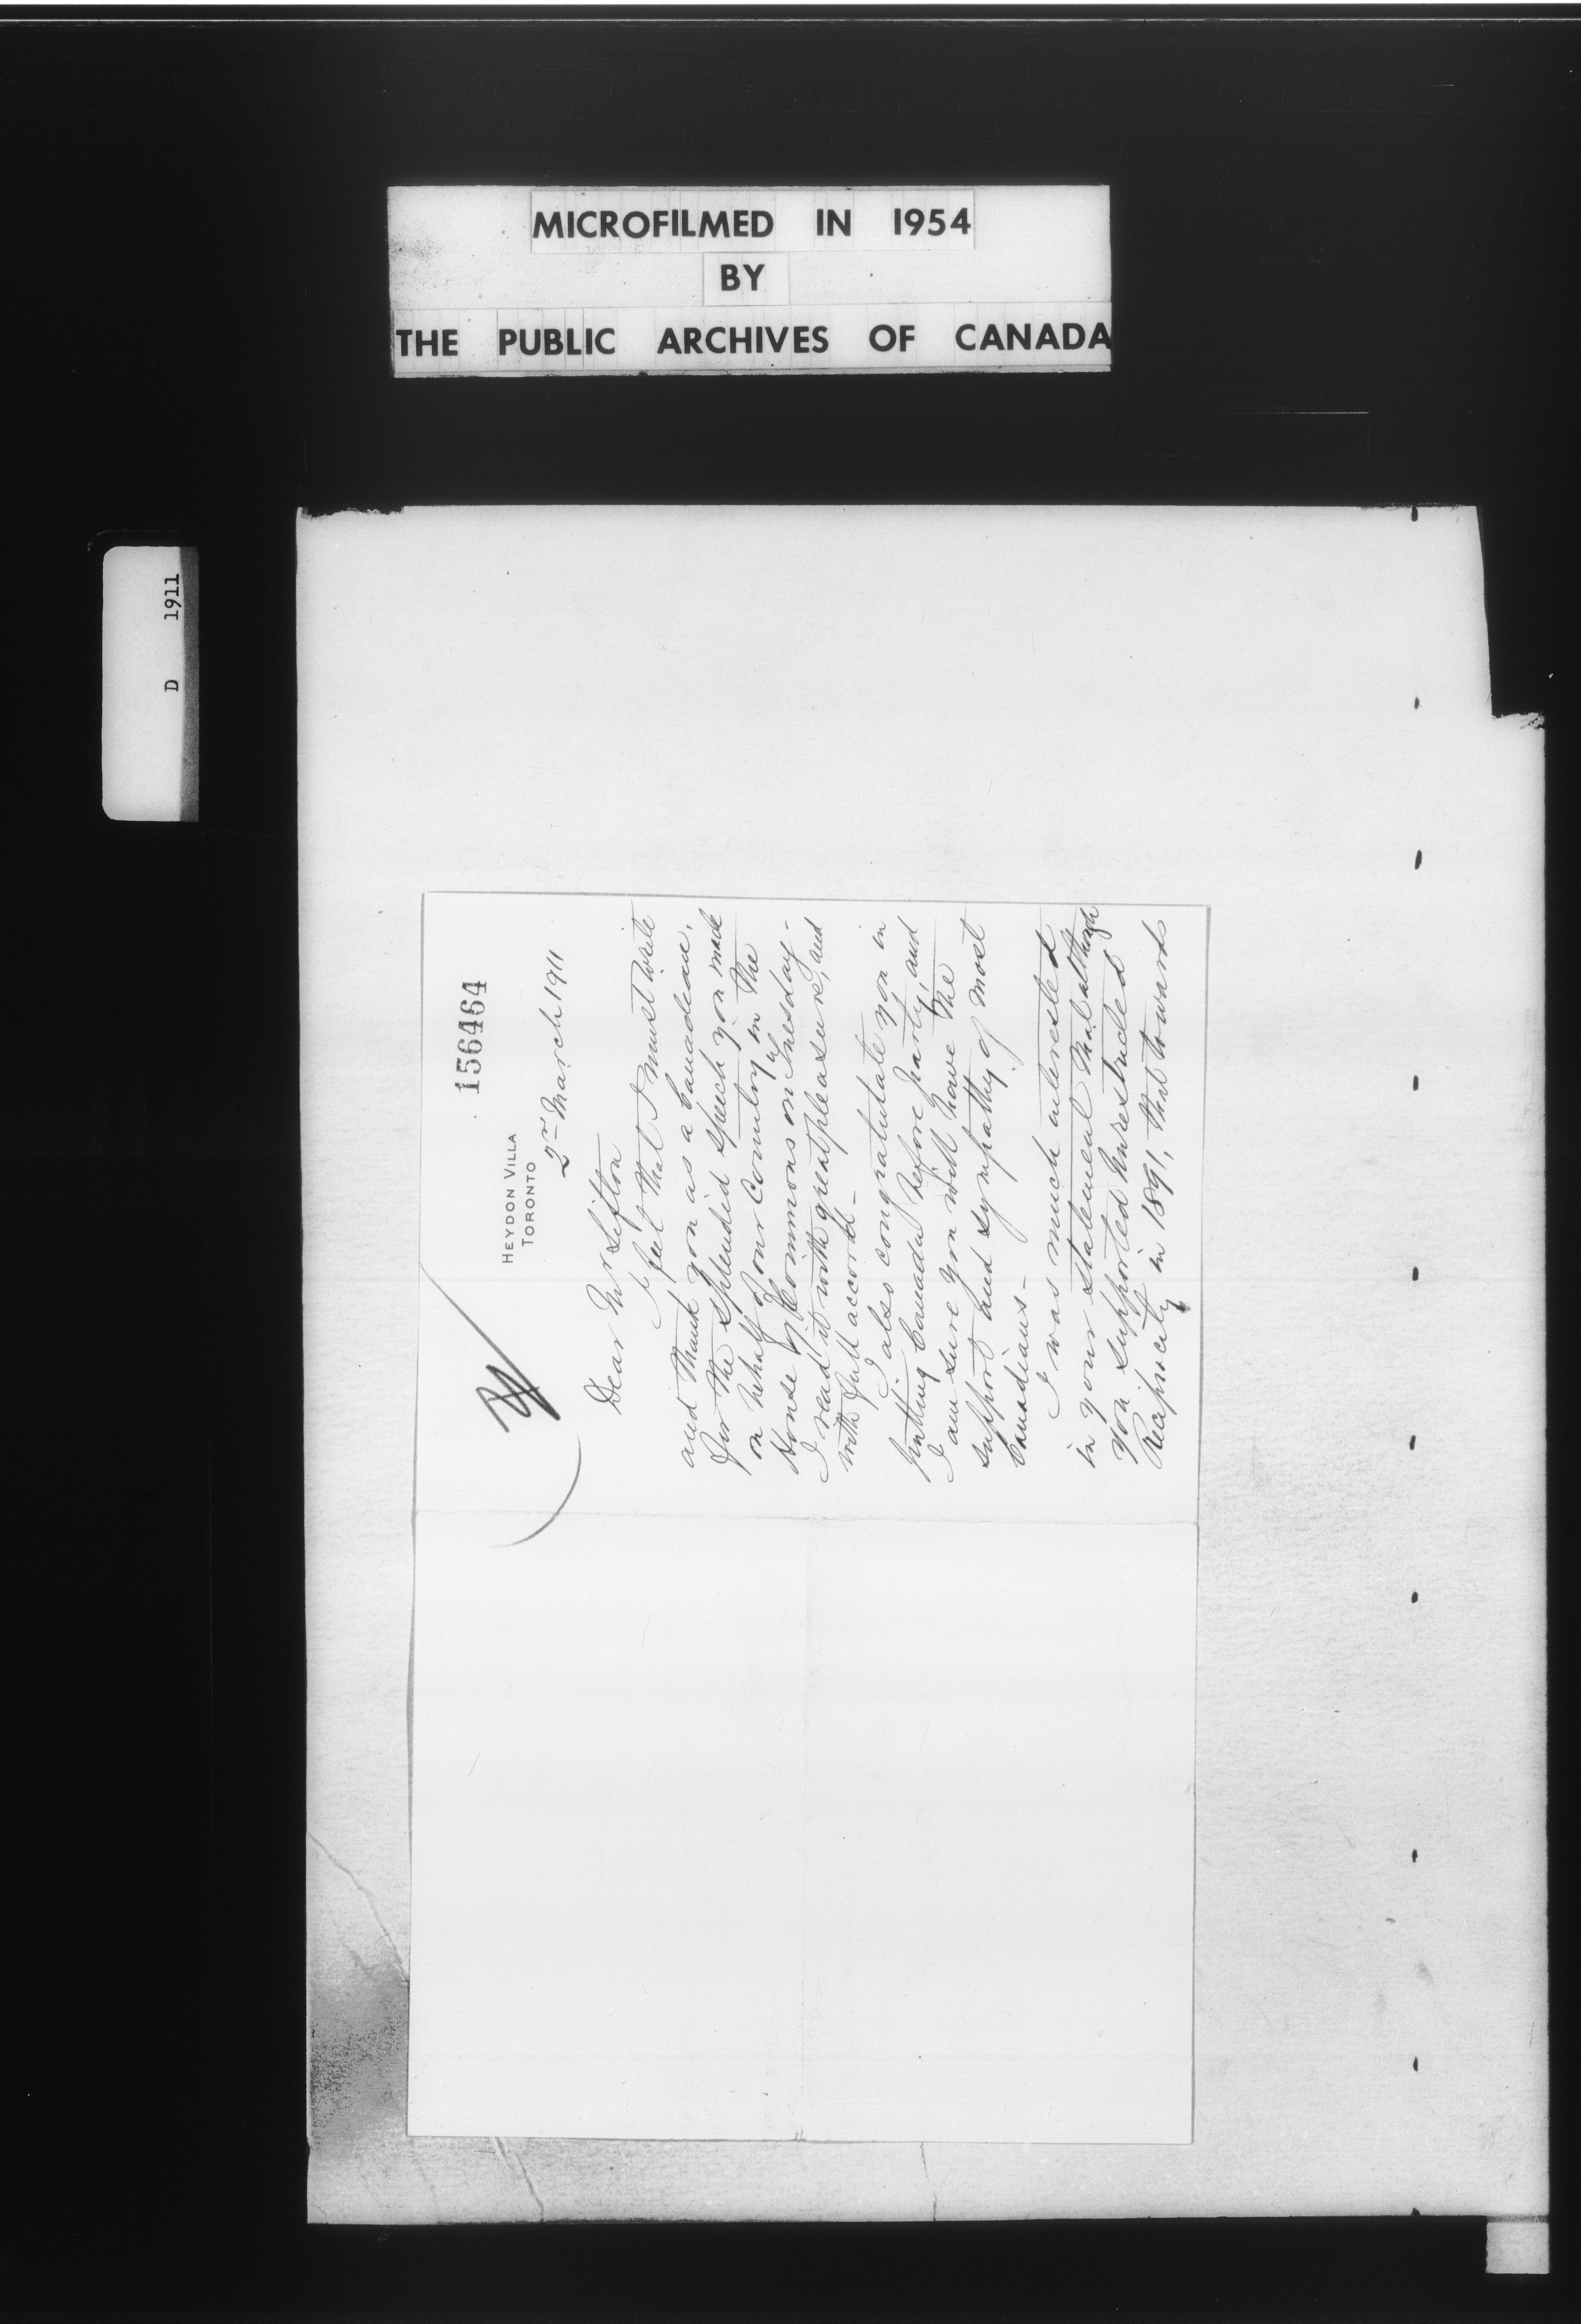 MICROFILMED IN 1954
BY
THE PUBLIC ARCHIVES OF CANADA
D 1911
156464
HEYDON VILLA
TORONTO
2nd March 1911
Dear Mr Sifton
I feel that I must write
and thank you as a Canadian,
for the splendid speech you made
on behalf of our Country in the
House of Commons on Tuesday -
I read it with great pleasure, and
with full accord -
I also congratulate you in
putting Canada before party, and
I am sure you will have the
support and sympathy of most
Canadians -
I was much interested
in your statement that although
you supported Unrestricted
Reciprocity in 1891, that towards